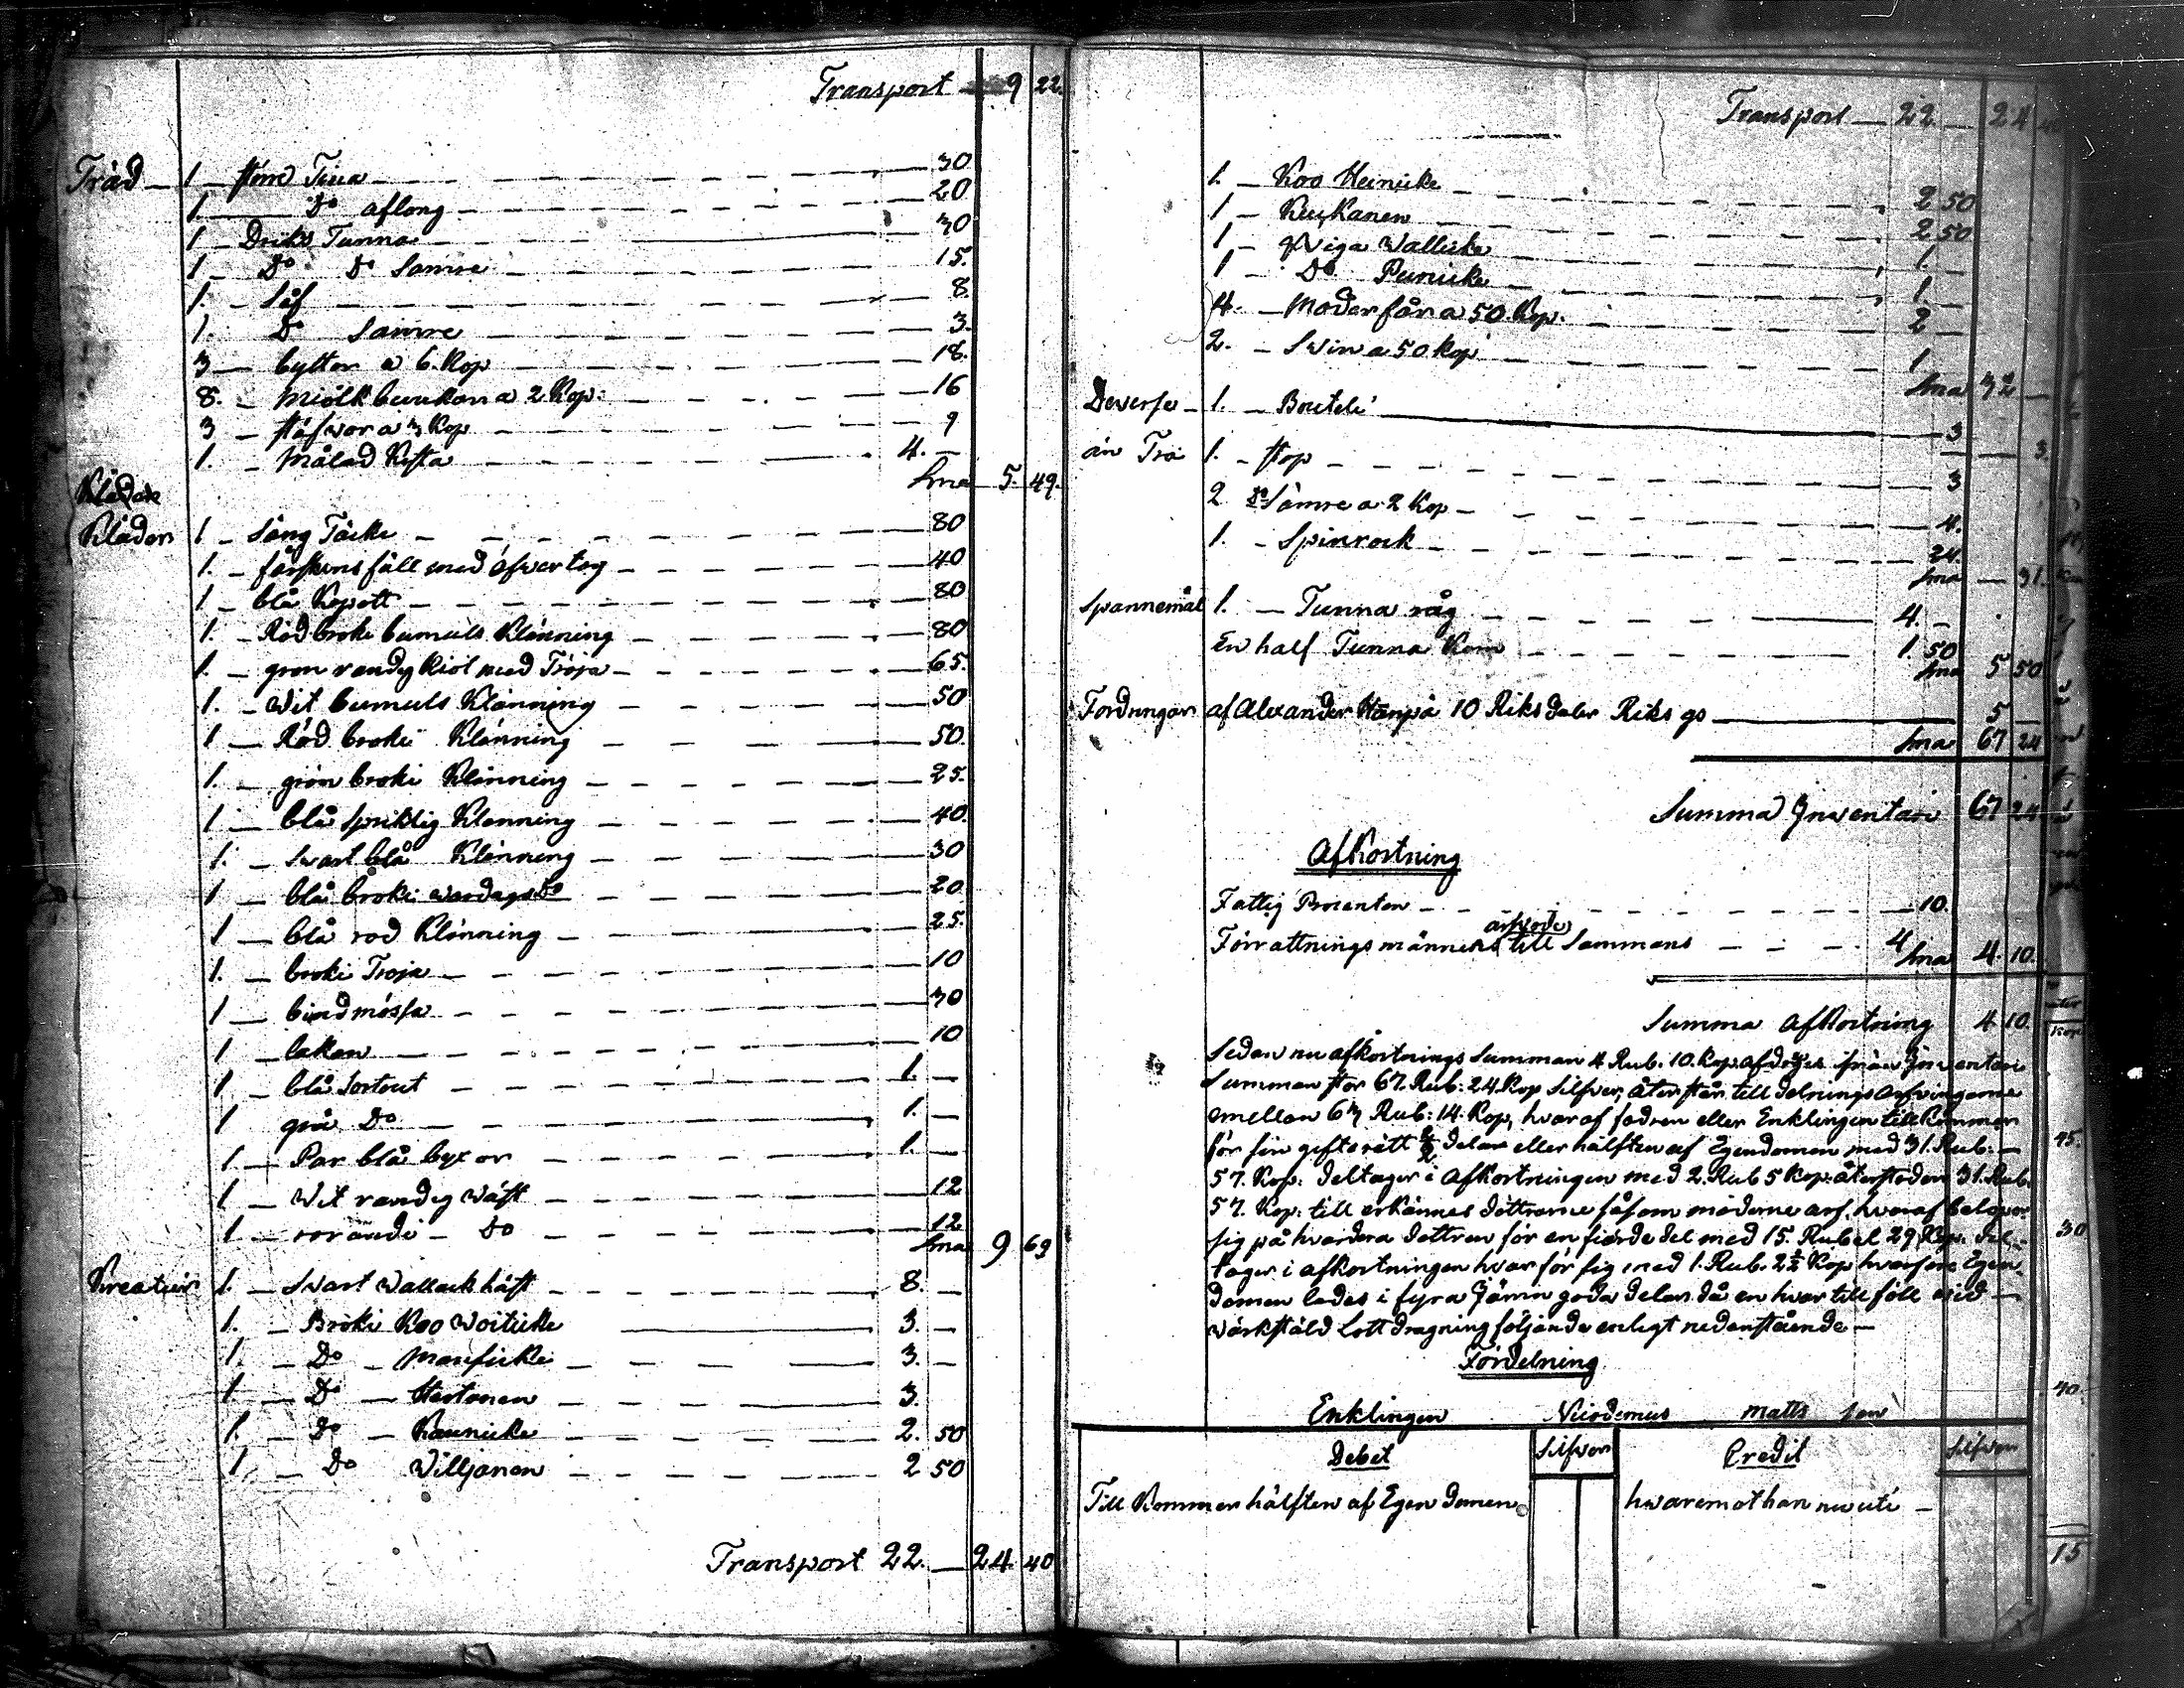 Transport — 9 22.
Träd — 1 — större Tina — 30
1 — Do aflong — 20
1 — Driks Tunna — 30
1 — Do Do Samre — 15.
1. — Såf — 8.
1. Do Samre — 3.
3 — byttor a 6. Kop — 18.
8. — Miölk bunkar a 2 Kop: — 16
3 — a 3 Kop — 9
1. — Målad Kista — 4. —
Sma 5. 49.
Kläder 1 — Säng Täcke — 80
1. — fårskins fäll med öfwertog — 40
1 — blå Kapott — 80
1. — Röd broki bumuls Klänning — 80
1. — grön randig Kiol med Tröja — 65.
1. — Wit bumuls Klänning — 50
1 — Röd broki Klänning — 50.
1. — grön broki Klänning — 25.
1 — blå spriklig Klänning — 40.
1. — Swart blå Klänning — 30
1 — blå broki wardags Do — 20.
1 — blå röd Klänning — 25.
1. — broki Tröja — 10
1 — bindmössa — 30
1 — lakan — 10
1 — blå Sortout — 1. —
1 grå Do — 1. —
1. — Par blå byxor — 1. —
1 — Wit randig Wäst — 12
1 — Do — 12
Sma 9 63
Kreatur 1. — Swart Wallack häst — 8. —
1. — Broki Koo Woiticke — 3. —
1. — Do — Mansicke — 3. —
1 — Do — Hertonen — 3.
1. — Do — Kaunicke — 2. 50
1 — Do Villjanen — 2 50
Transport 22. — 24. 40
Transport — 22. — 24
1. — Koo Heinicke — 2 50
1 — Kuckanen — 2 50
1 — qwiga Wallicke — 1. —
1 — Do Punicke — 1. —
4. — Moder får a 50. Kop. — 2 —
2. — Swin a 50 Kop — 1
Sma 32 —
Deverse — 1. — Boutelé — 3
— 3.
än Trä 1. — stop — 3
2 Do Sämre a 2 Kop — 4.
1. — Spinrock — 24.
Sma — 31.
Spannemål 1. — Tunna råg — 4. —
En half Tunna Korn — 1. 50
Sma 5 50
Fordringar af Alexander 10 Riksdaler Riks gs — 5 —
Sma 67 24
Summa Inventari 67 24
Afkortning
Fattig Procenten — 10.
arfvode
Förrattnings männerna till Sammans — 4
Sma 4. 10.
Summa Afkortning 4 10.
Sedan nu afkortnings Summan 4 Rub. 10. Kop. afdrages ifrån Inventari
Summan stor 67. Rub: 24 Kop Silfver, återstår till delnings Arfvingarne
emellan 63 Rub: 14. Kop, hvaraf fadren eller Enklingen tillkommer
för sin giftorätt 1/2 delar eller hälften af Egendomen med 31. Rub: —
57. Kop: deltager i Afkortningen med 2. Rub 5 Kop: återstoden 31. Rub.
57. Kop: till erkännes döttrarne såsom möderne arf. hvaraf belöper
sig på hvardera dottren för en fierde del med 15. Rubel 29 Kop: del-
tager i afkortningen hvar för sig med 1. Rub. 2 1/2 Kop hvarföre Egen-
domen lades i fyra Jämn goda delar då en hvar till föll wid —
wärkstäld Lottdragning följande enligt nedanstående —
Fördelning
Enklingen Nicodemus Matts son
Debet Silfver Credit Silfver
Till Kommer hälften af Egendomen hwaremot han nu uti —
15